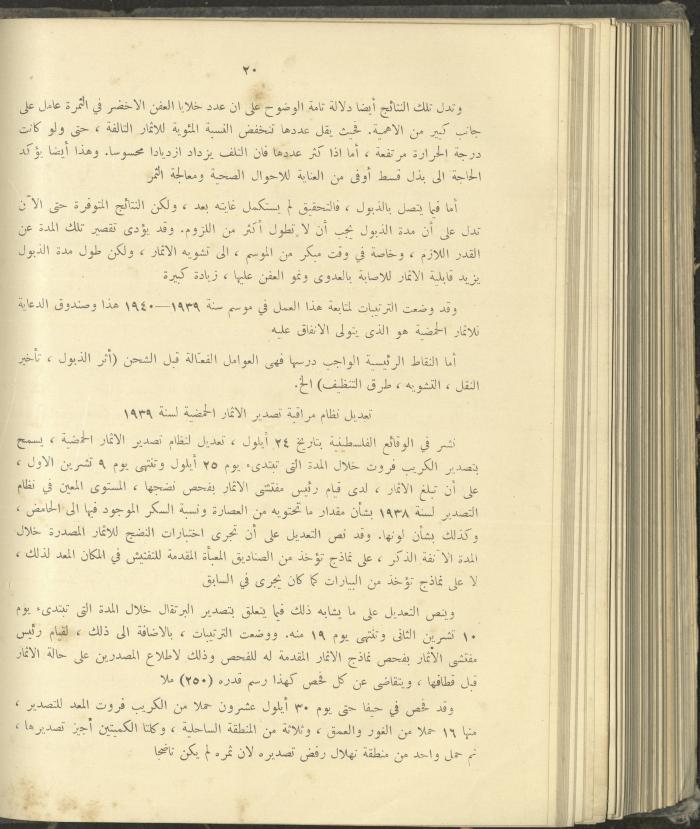 ٢٠
وتدل تلك النتائج أيضا دلالة تامة الوضوح على ان عدد خلايا العفن الاخضر في الثمرة عامل على
جانب كبير من الاهمية. فحيث يقل عددها تنخفض النسبة المئوية للاثمار التالفة ، حتى ولو كانت
درجة الحرارة مرتفعة ، أما اذا كثر عددها فان التلف يزداد ازديادا محسوسا. وهذا أيضا يؤكد
الحاجة الى بذل قسط أوفى من العناية للاحوال الصحية ومعالجة الثمر
أما فيما يتصل بالذبول ، فالتحقيق لم يستكمل غايته بعد ، ولكن النتائج المتوفرة حتى الآن
تدل على أن مدة الذبول يجب أن لا تطول أكثر من اللزوم. وقد يؤدى تقصير تلك المدة عن
القدر اللازم ، وخاصة في وقت مبكر من الموسم ، الى تشويه الاثمار ، ولكن طول مدة الذبول
يزيد قابلية الاثمار للاصابة بالعدوى ونمو العفن عليها ، زيادة كبيرة
وقد وضعت الترتيبات لمتابعة هذا العمل في موسم سنة ١٩٣٩—١٩٤٠ هذا وصندوق الدعاية
للاثمار الحمضية هو الذى يتولى الانفاق عليه
أما النقاط الرئيسية الواجب درسها فهى العوامل الفعالة قبل الشحن (أثر الذبول ، تأخير
النقل ، التشويه ، طرق التنظيف) الخ.
تعديل نظام مراقبة تصدير الاثمار الحمضية لسنة ١٩٣٩
نشر في الوقائع الفلسطينية بتاريخ ٢٤ أيلول ، تعديل لنظام تصدير الاثمار الحمضية ، يسمح
بتصدير الكريب فروت خلال المدة التى تبتدىء يوم ٢٥ أيلول وتنتهى يوم ٩ تشرين الاول ،
على أن تبلغ الاثمار ، لدى قيام رئيس مفتشى الاثمار بفحص نضجها ، المستوى المعين في نظام
التصدير لسنة ١٩٣٨ بشأن مقدار ما تحتويه من العصارة ونسبة السكر الموجود فيها الى الحامض ،
وكذلك بشأن لونها. وقد نص التعديل على أن تجرى اختبارات النضج للاثمار المصدرة خلال
المدة الآنفة الذكر ، على نماذج تؤخذ من الصناديق المعبأة المقدمة للتفتيش في المكان المعد لذلك ،
لا على نماذج تؤخذ من البيارات كما كان يجرى في السابق
وينص التعديل على ما يشابه ذلك فيما يتعلق بتصدير البرتقال خلال المدة التى تبتدىء يوم
١٠ تشرين الثانى وتنتهى يوم ١٩ منه. ووضعت الترتيبات ، بالاضافة الى ذلك ، لقيام رئيس
مفتشى الأثمار بفحص نماذج الاثمار المقدمة له للفحص وذلك لاطلاع المصدرين على حالة الاثمار
قبل قطافها ، ويتقاضى عن كل فحص كهذا رسم قدره (٢٥٠) ملا
وقد فحص في حيفا حتى يوم ٣٠ أيلول عشرون حملا من الكريب فروت المعد للتصدير ،
منها ١٦ حملا من الغور والعمق ، وثلاثة من المنطقة الساحلية ، وكلتا الكميتين أجيز تصديرها ،
ثم حمل واحد من منطقة نهلال رفض تصديره لان ثمره لم يكن ناضجا